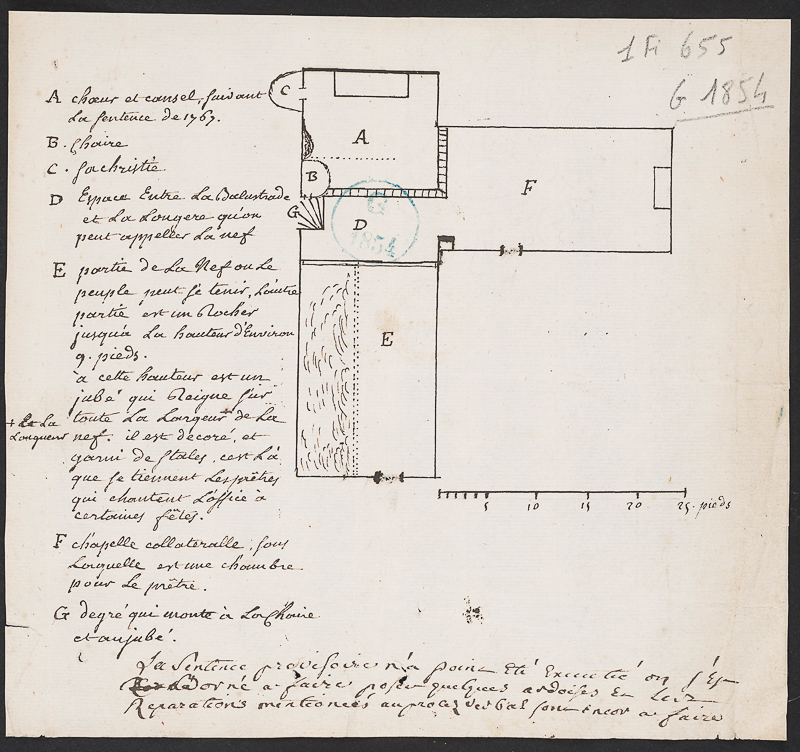 1 Fi 655
G 1854
A chœur et cansel, suivant
La sentence de 1767.
B. Chaire
C. Sachristie
D Espace Entre La Balustrade
et La Longere qu'on
peut appeller La nef
E partie de La Nef ou Le
peuple peut se tenir, L'autre
partie est un Rocher
jusqu'a La hauteur d'Environ
9. pieds.
à cette hauteur est un
jubé qui Reigne sur
toute La Largeur + de La
+ La
Longueur
nef. il est decoré, et
garni de stales, c'est La
que se tiennent Les prêtres
qui chantent L'office à
certaines fêtes.
F chapelle collateralle, sous
Laquelle est une chambre
pour Le prêtre.
G degré qui monte à La Chaire
et au jubé.
La Sentence provisoire n'a point Eté Executté on s'Est
Borné a faire poser quelques ardoises Et Les
Reparations mentionneés au procez verbal sont encor a faire
C
A
B
G
D
F
E
G
1854
5 10 15 20 25. pieds